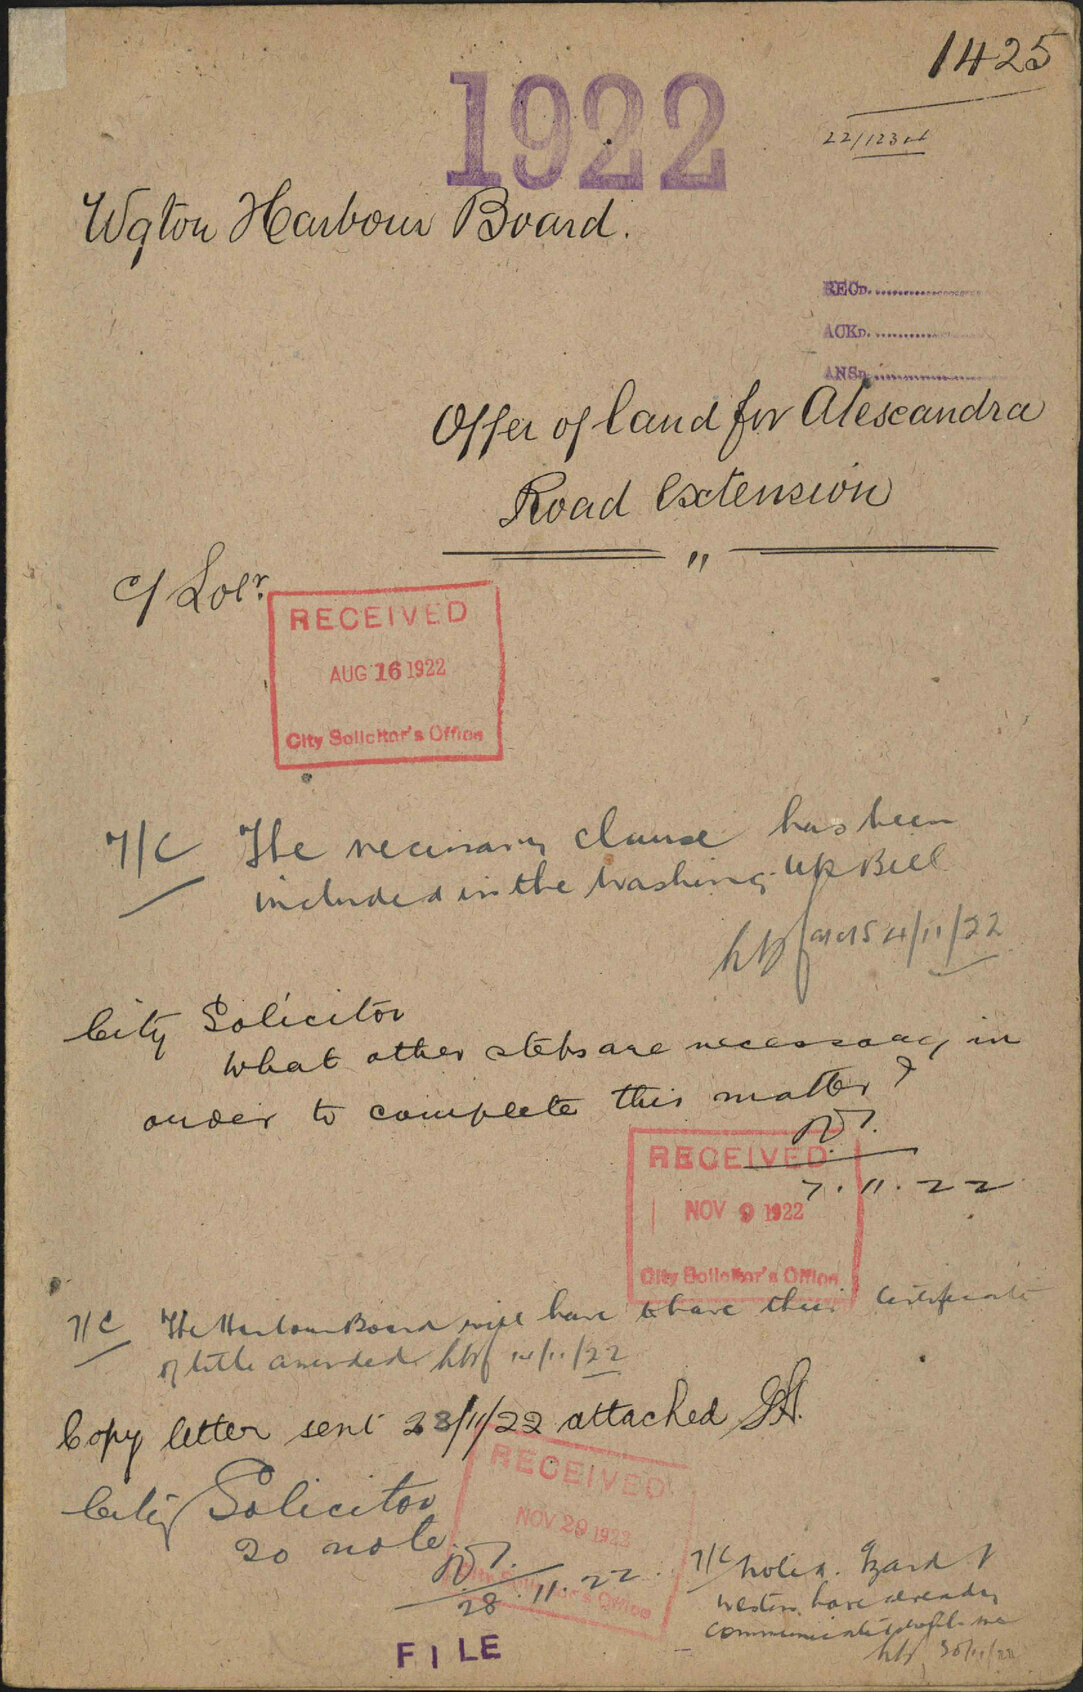 1425
1922
22/123
Wgton Harbour Board.
RECD.
ACKD.
ANSD.
Offer of land for Alexandra
Road Extension
"
C/Solr.
RECEIVED
AUG 16 1922
City Solicitor's Office
T/C The necessary clause has been
included in the Washing-up Bill
4/11/22
City Solicitor
What other steps are necessary in
order to complete this matter?
RECEIVED
7.11.22
NOV 9 1922
City Solicitor's Office
T/C The Harbour Board will have to have their Certificate
of title amended 14/11/22
Copy letter sent 28/11/22 attached
RECEIVED
City Solicitor
NOV 29 1922
To note.
28.11.22.
City Solicitor's Office
T/C Noted. Izard &
Weston have already
communicated with me
30/11/22
FILE